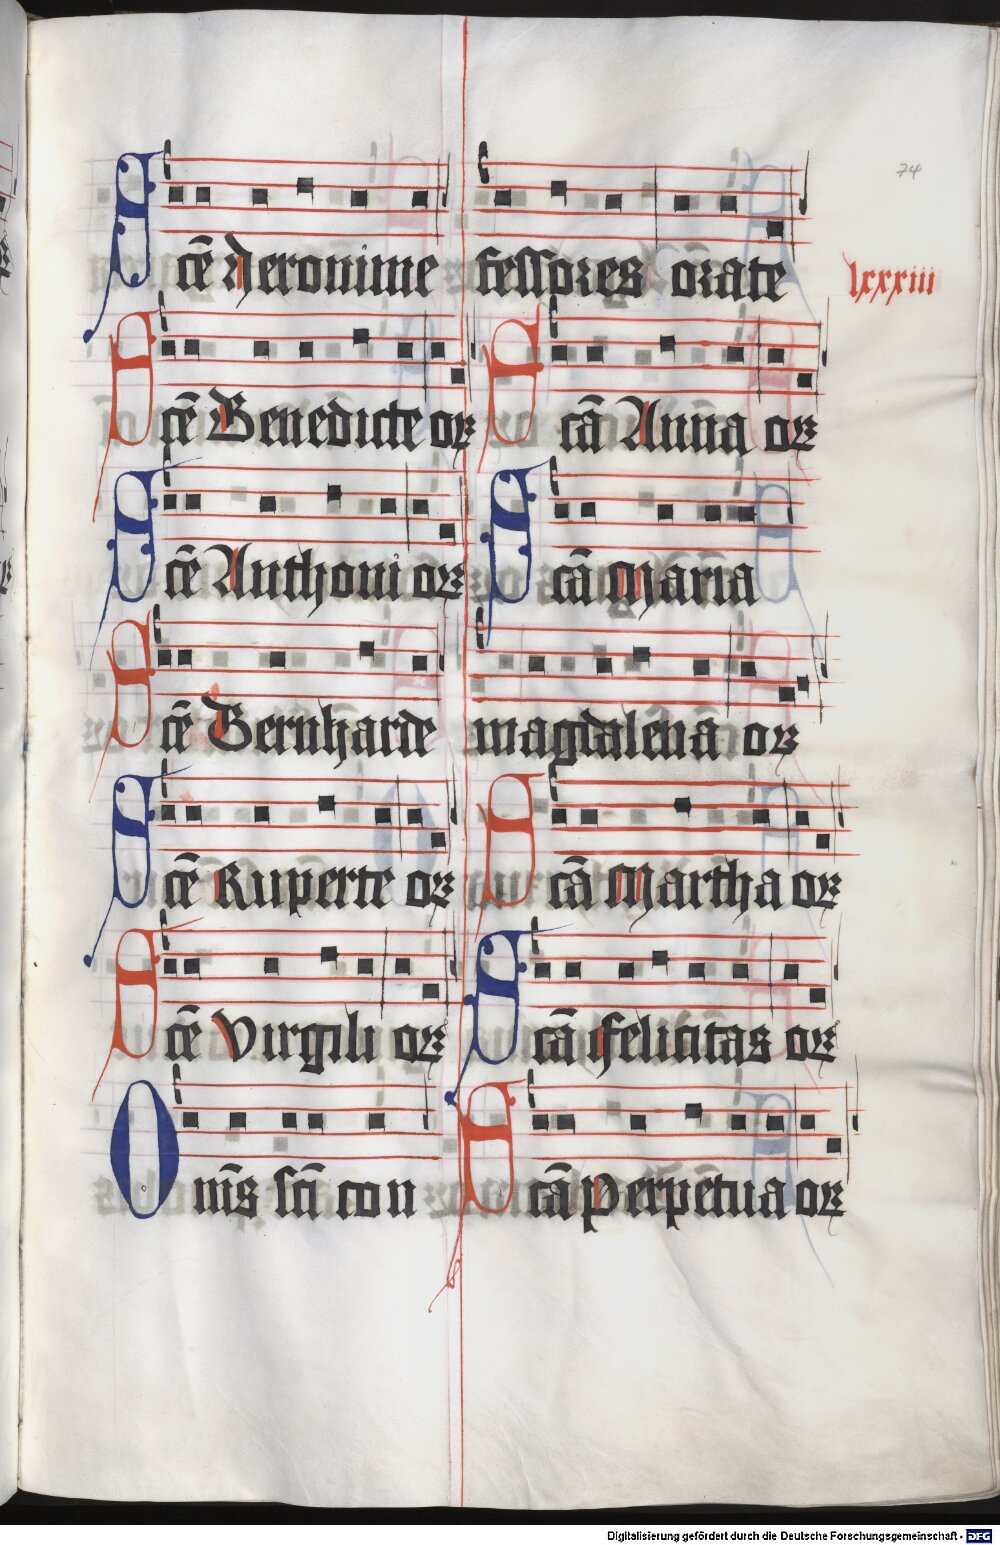 74
Scē Jeronime
Scē Benedicte or
Scē Anthoni or
Scē Bernharde
Scē Ruperte or
Scē Virgili or
Om̄s scī con
fessores orate
Scā Anna or
Scā Maria
magdalena or
Scā Martha or
Scā felicitas or
Scā perpetua or
lxxxiii
Digitalisierung gefördert durch die Deutsche Forschungsgemeinschaft - DFG